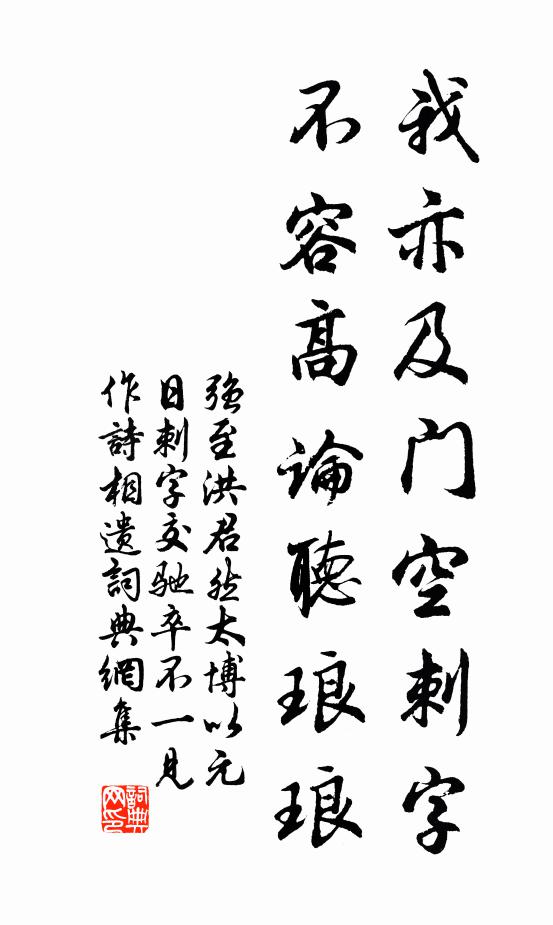 我亦及門空刺字
不容高論聽琅琅
强至洪君然太博以元
日刺字交馳卒不一見
作詩相遺詞典網集
詞典网印